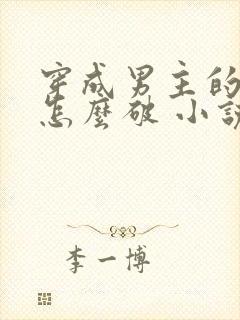 穿成男主的
怎麼破 小說
李一博